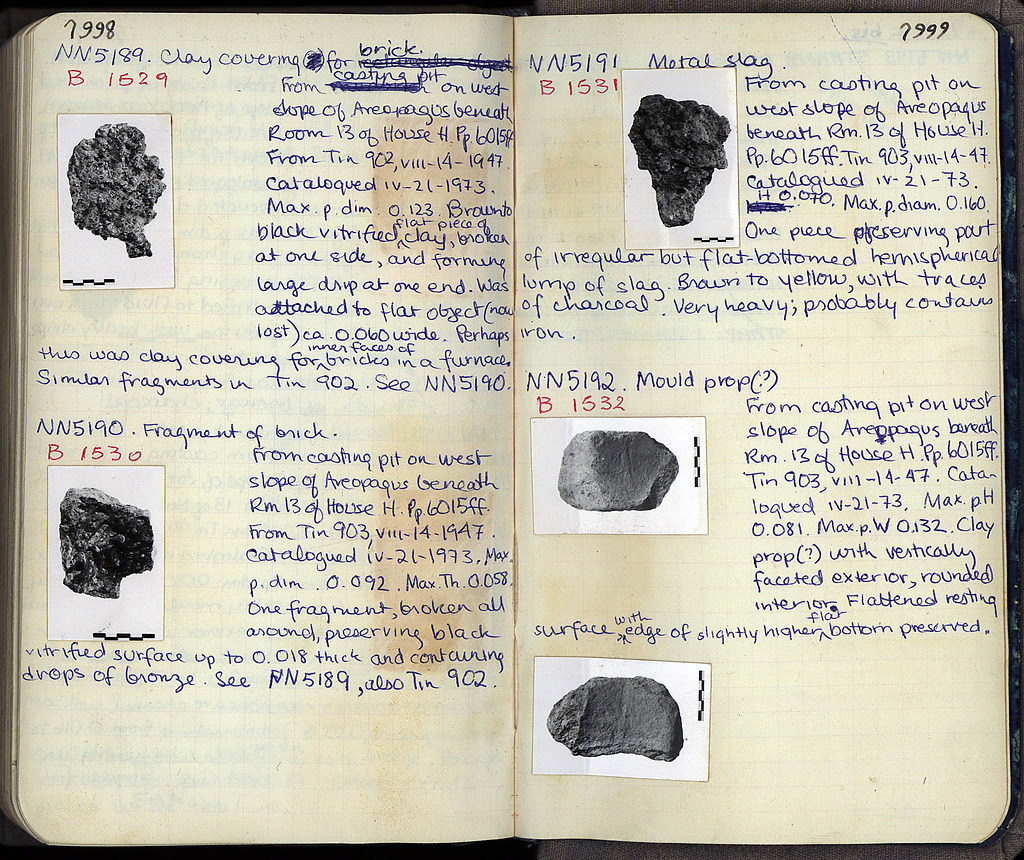 7998
NN5189. Clay covering for brick.
B 1529
From casting pit on west
slope of Areopagus beneath
Room 13 of House H. Pp. 6015ff
From Tin 902, viii-14-1947.
Catalogued iv-21-1973.
Max. p. dim. 0.123. Brown to
black vitrified flat piece of clay, broken
at one side, and forming
large drip at one end. Was
attached to flat object (now
lost) ca. 0.060 wide. Perhaps
this was clay covering for inner faces of bricks in a furnace.
Similar fragments in Tin 902. See NN5190.
NN5190. Fragment of brick.
B 1530
From casting pit on west
slope of Areopagus beneath
Rm 13 of House H. Pp. 6015ff.
From Tin 903, viii-14-1947.
Catalogued iv-21-1973. Max.
p. dim. 0.092. Max Th. 0.058.
One fragment, broken all
around, preserving black
vitrified surface up to 0.018 thick and containing
drops of bronze. See NN5189, also Tin 902.
7999
NN5191 Metal slag
B 1531
From casting pit on
west slope of Areopagus
beneath Rm. 13 of House H.
Pp. 6015ff. Tin 903, viii-14-47.
Catalogued iv-21-73.
H 0.070. Max. p. diam. 0.160.
One piece preserving part
of irregular but flat-bottomed hemispherical
lump of slag. Brown to yellow, with traces
of charcoal. Very heavy; probably contains
iron.
NN5192. Mould prop(?)
B 1532
From casting pit on west
slope of Areopagus beneath
Rm. 13 of House H. Pp. 6015ff.
Tin 903, viii-14-47. Cata-
logued iv-21-73. Max. pH
0.081. Max. p. W 0.132. Clay
prop(?) with vertically
faceted exterior, rounded
interior. Flattened resting
surface with edge of slightly higher flat bottom preserved.